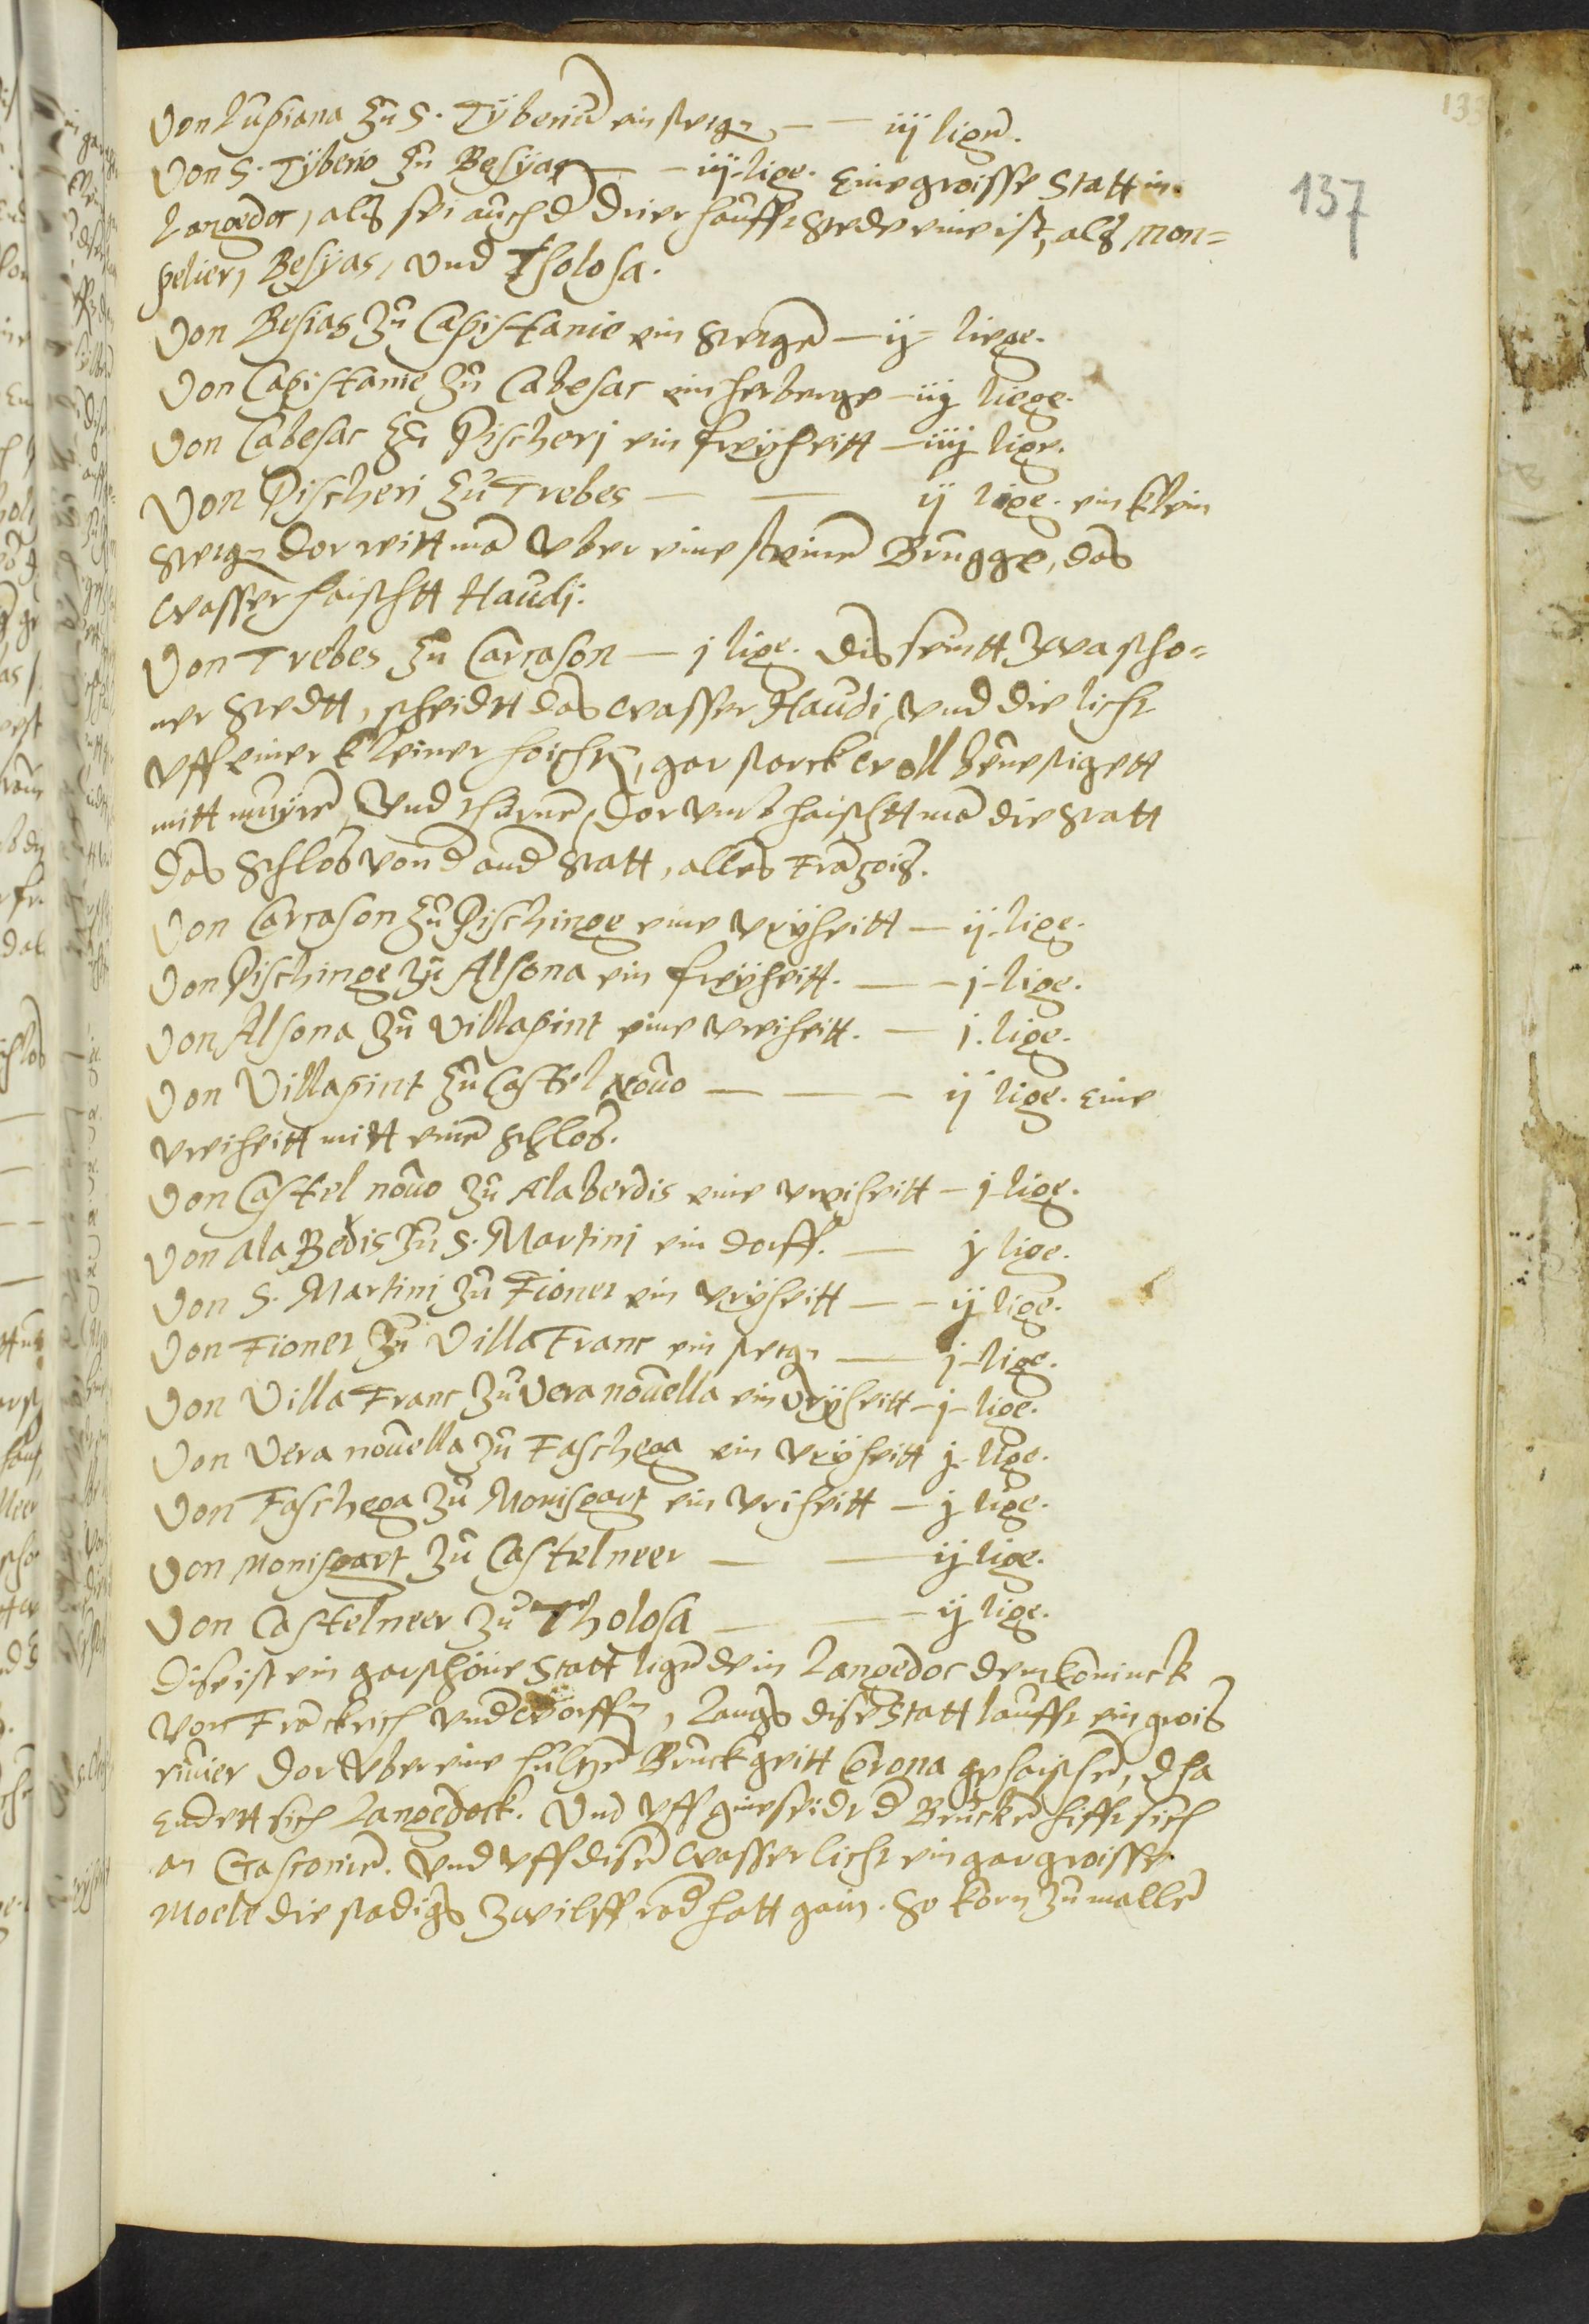 133
137
Von Lupiana zu S. Tÿberiu ein stetgen — — iij ligen.
Von S. Tÿberio zu Besÿas — — iij-lige. Eine groisse Statt in
Langedoc, als sei auch der drier haufft stede eine ist, als Mon=
pelier, Besÿas, und Tholosa.
Von Besias zu Capistanie ein stetgen — ij — liege.
Von Capistanie zu Cabesac ein herberge — iij liege.
Von Cabesac zu Pischerj ein freÿheitt — iiij lige.
Von Pischeri zu Trebes — — ij lige. ein klein
stetgen dor reitt man uber eine steinen Brugge, das
wasser haischtt Haudj.
Von Trebes zu Carcason — j lige. Dis seintt zwa scho=
ner stedtt, scheidtt das wasser Haudi, und die licht
uff einer kleiner hoichten, gar starck woll beuestigett
mitt muÿren und thurnen, dor umb haischtt man die statt
das schlos von der ander statt, alles François.
Von Carcason zu Pischinge eine vrÿheitt — ij-lige.
Von Pischinge zu Alsona ein freÿheitt. — — j-lige.
Von Alsona zu Villapint eine vreiheitt. — j. lige.
Von Villapint zu Castel nouo — — — ij lige. Eine
vreiheitt mitt einen schlos.
Von Castel nouo zu Alaberdis eine vreiheitt — j-lige.
Von Ala Bedris zu S. Martini ein dorff. — j lige.
Von S. Martini zu Fionet ein vrÿheitt — — ij lige.
Von Fionet zu Villa Franc ein stetgen — j-lige.
Von Villa Franc zu Vera nouella ein vrÿheitt — j — lige.
Von Vera nouella zu Faschega ein vrÿheitt j-lige.
Von Faschega zu Monisgart ein vriheitt — j lige.
Von Monisgart zu Castelneer — — ij lige.
Von Castelneer zu Tholosa — — — ij lige.
Dise ist ein gar schöne Statt ligende in Langedoc dem Coninck
von Franckrich underworffen, langs dise Statt laufft ein grois
riuier dor uber eine hultzen Bruck geitt Corona gehaischen, d ha
endett sich Langedock. Und uff ginseidt der Brucken hefft sich
an Gasconien. Und uff disem wasser licht ein gar groisse
Moele die stadigs zwilff rad hatt gain. So korn zu mallen